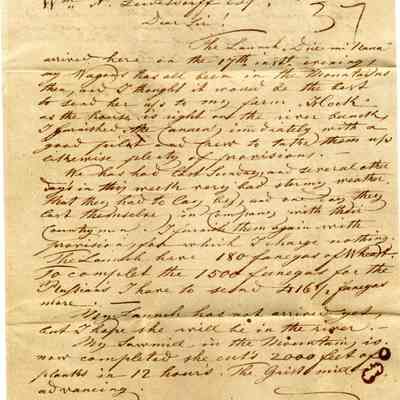 Wm A. Leidesdorff Esq
37
Dear Sir!
The Launch, Dice mi Nana
arrived here on the 17th inst. evening,
my Wagons has all been in the Mountains
then, and I thought it would be the best
to send her up to my farm Hock
as the house is right on the river beach,
I furnished immediately with a
good pilot and crew to take them up
likewise plenty of provisions.
We has had last Sunday, and several other
days in this week very bad stormy weather.
that they had to lay bey, and one day they
lost themselves, in Company with their
Countrymen. I furnish them again with
provision, for which I charge nothing.
The Launch have 180 fanegas of Wheat.
To complet the 1500 funegas for the
Russians I have to send 416 1/2 fanegas
more. —
My Launch has not arrived yet,
but I hope she will be in the river. —
My Sawmill in the Mountain, is
now completed she cut's 2000 feet of
planks in 12 hours. The Grist mill is
advancing.